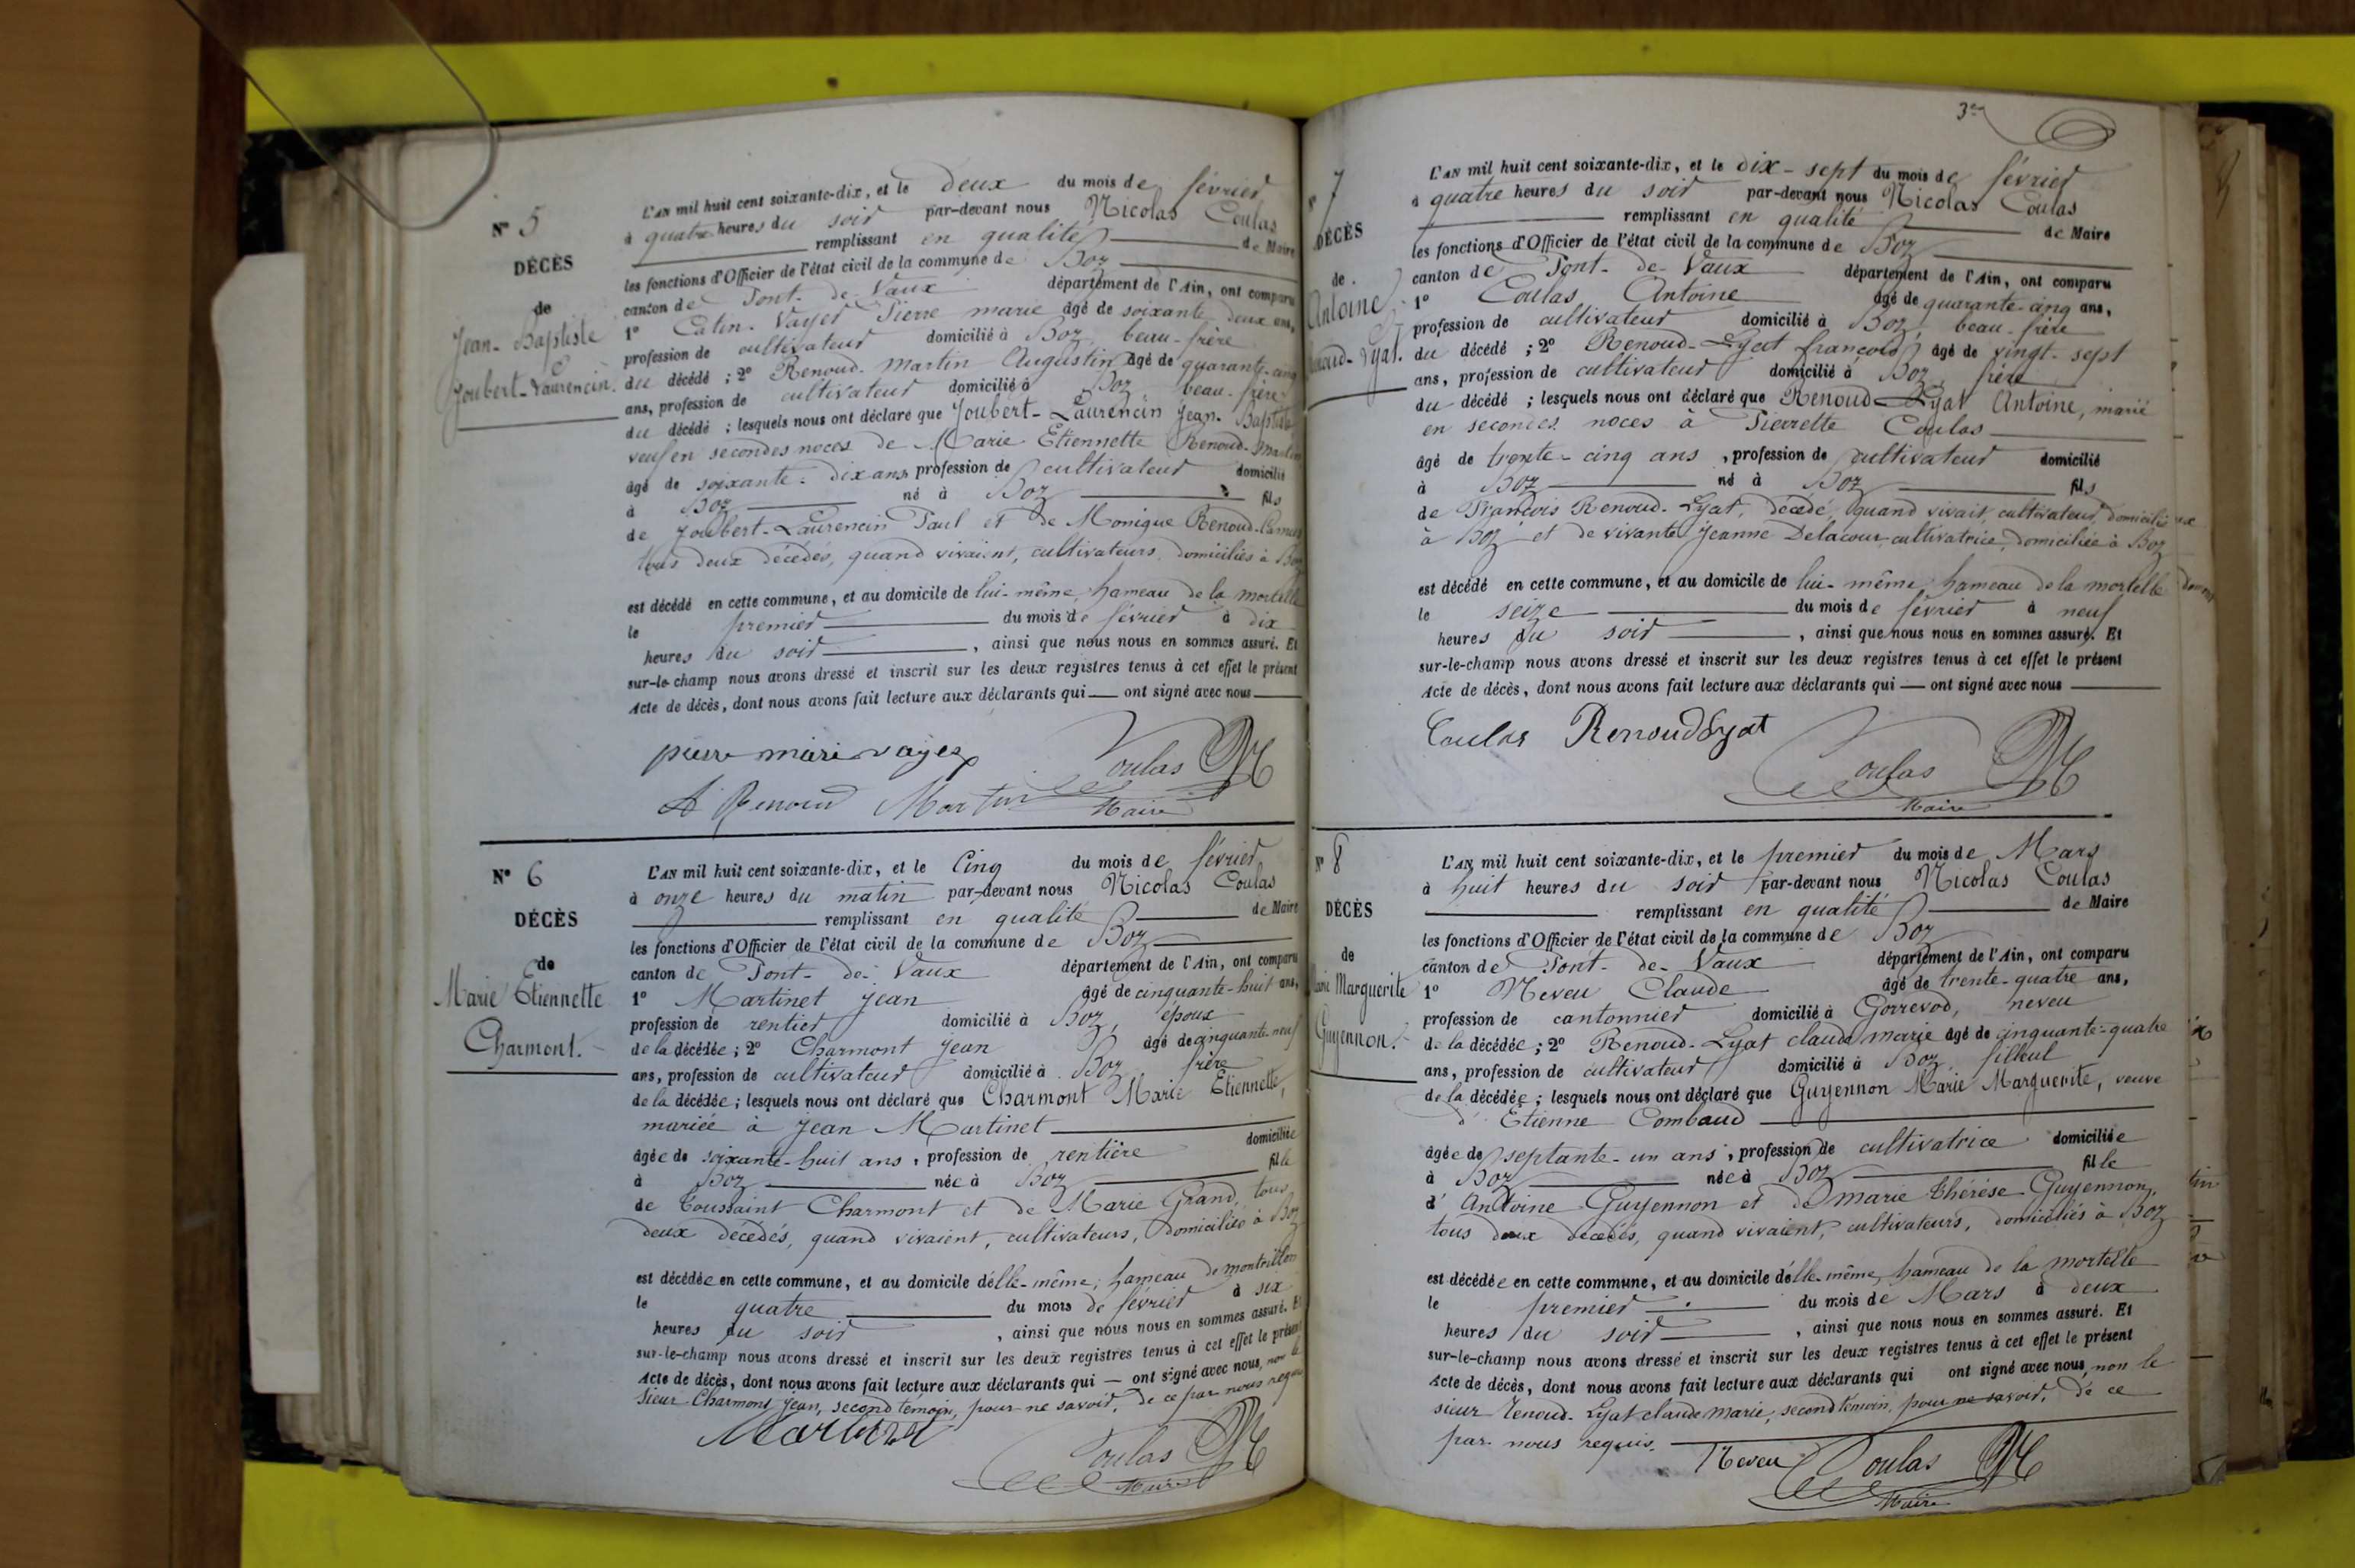 N° 5
DÉCÈS
de
Jean-Baptiste
Joubert-Laurencin.
L'AN mil huit cent soixante-dix, et le deux du mois de février
à quatre heures du soir par-devant nous Nicolas Coulas
remplissant en qualité de Maire
les fonctions d'Officier de l'état civil de la commune de Boz
canton de Pont-de-Vaux département de l'Ain, ont comparu
1° Catin-Vayer Pierre marie âgé de soixante deux ans,
profession de cultivateur domicilié à Boz, beau-frère
du décédé ; 2° Renoud-Martin Augustin âgé de quarante-cinq
ans, profession de cultivateur domicilié à Boz beau-frère
du décédé ; lesquels nous ont déclaré que Joubert-Laurencin Jean-Baptiste
veuf en secondes noces de Marie Etiennette Renoud-Martin
âgé de soixante-dix ans profession de cultivateur domicilié
à Boz né à Boz fils
de Joubert-Laurencin Paul et de Monique Renoud-
tous deux décédés, quand vivaient, cultivateurs, domiciliés à Boz
est décédé en cette commune, et au domicile de lui-même, hameau de la mortelle
le premier du mois de février à dix
heures du soir, ainsi que nous nous en sommes assuré. Et
sur-le-champ nous avons dressé et inscrit sur les deux registres tenus à cet effet le présent
Acte de décès, dont nous avons fait lecture aux déclarants qui — ont signé avec nous
pierre marie vayer Coulas
A Renoud Martin Maire
N° 6
DÉCÈS
de
Marie Etiennette
Charmont.
L'AN mil huit cent soixante-dix, et le Cinq du mois de février
à onze heures du matin par-devant nous Nicolas Coulas
remplissant en qualité de Maire
les fonctions d'Officier de l'état civil de la commune de Boz
canton de Pont-de-Vaux département de l'Ain, ont comparu
1° Martinet Jean âgé de cinquante-huit ans,
profession de rentier domicilié à Boz, époux
de la décédée ; 2° Charmont Jean âgé de cinquante-neuf
ans, profession de cultivateur domicilié à Boz, frère
de la décédée ; lesquels nous ont déclaré que Charmont Marie Etiennette,
mariée à Jean Martinet
âgée de soixante-huit ans, profession de rentière domiciliée
à Boz née à Boz fille
de Toussaint Charmont et de Marie Grand, tous
deux décédés, quand vivaient, cultivateurs, domiciliés à Boz
est décédée en cette commune, et au domicile d'elle-même, hameau de montrillon
le quatre du mois de février à six
heures du soir, ainsi que nous nous en sommes assuré. Et
sur-le-champ nous avons dressé et inscrit sur les deux registres tenus à cet effet le présent
Acte de décès, dont nous avons fait lecture aux déclarants qui — ont signé avec nous, non le
sieur Charmont Jean, second témoin, pour ne savoir, de ce par nous requis
Martinet
Coulas
Maire
3e
N° 7
DÉCÈS
de
Antoine
Renoud-Lyat.
L'AN mil huit cent soixante-dix, et le dix-sept du mois de février
à quatre heures du soir par-devant nous Nicolas Coulas
remplissant en qualité de Maire
les fonctions d'Officier de l'état civil de la commune de Boz
canton de Pont-de-Vaux département de l'Ain, ont comparu
1° Coulas Antoine âgé de quarante-cinq ans,
profession de cultivateur domicilié à Boz, beau-frère
du décédé ; 2° Renoud-Lyat françois âgé de vingt-sept
ans, profession de cultivateur domicilié à Boz, frère
du décédé ; lesquels nous ont déclaré que Renoud-Lyat Antoine, marié
en secondes noces à Pierrette Coulas
âgé de trente-cinq ans, profession de cultivateur domicilié
à Boz né à Boz fils
de François Renoud-Lyat, décédé, quand vivait, cultivateur, domicilié
à Boz et de vivante Jeanne Delacour cultivatrice, domiciliée à Boz
est décédé en cette commune, et au domicile de lui-même, hameau de la mortelle
le seize du mois de février à neuf
heures du soir, ainsi que nous nous en sommes assuré. Et
sur-le-champ nous avons dressé et inscrit sur les deux registres tenus à cet effet le présent
Acte de décès, dont nous avons fait lecture aux déclarants qui — ont signé avec nous
Coulas Renoud Lyat
Coulas
Maire
N° 8
DÉCÈS
de
Marie Marguerite
Guyennon.
L'AN mil huit cent soixante-dix, et le premier du mois de Mars
à huit heures du soir par-devant nous Nicolas Coulas
remplissant en qualité de Maire
les fonctions d'Officier de l'état civil de la commune de Boz
canton de Pont-de-Vaux département de l'Ain, ont comparu
1° Neveu Claude âgé de trente-quatre ans,
profession de cantonnier domicilié à Gorrevod, neveu
de la décédée ; 2° Renoud-Lyat claude marie âgé de cinquante-quatre
ans, profession de cultivateur domicilié à Boz, filleul
de la décédée ; lesquels nous ont déclaré que Guyennon Marie Marguerite, veuve
d'Etienne Combaud
âgée de septante-un ans, profession de cultivatrice domiciliée
à Boz née à Boz fille
d'Antoine Guyennon et de marie Thérèse Guyennon,
tous deux décédés, quand vivaient, cultivateurs, domiciliés à Boz
est décédée en cette commune, et au domicile d'elle-même, hameau de la mortelle
le premier du mois de Mars à deux
heures du soir, ainsi que nous nous en sommes assuré. Et
sur-le-champ nous avons dressé et inscrit sur les deux registres tenus à cet effet le présent
Acte de décès, dont nous avons fait lecture aux déclarants qui ont signé avec nous, non le
sieur Renoud-Lyat claude marie, second témoin, pour ne savoir, de ce
par nous requis.
Neveu Coulas
Maire